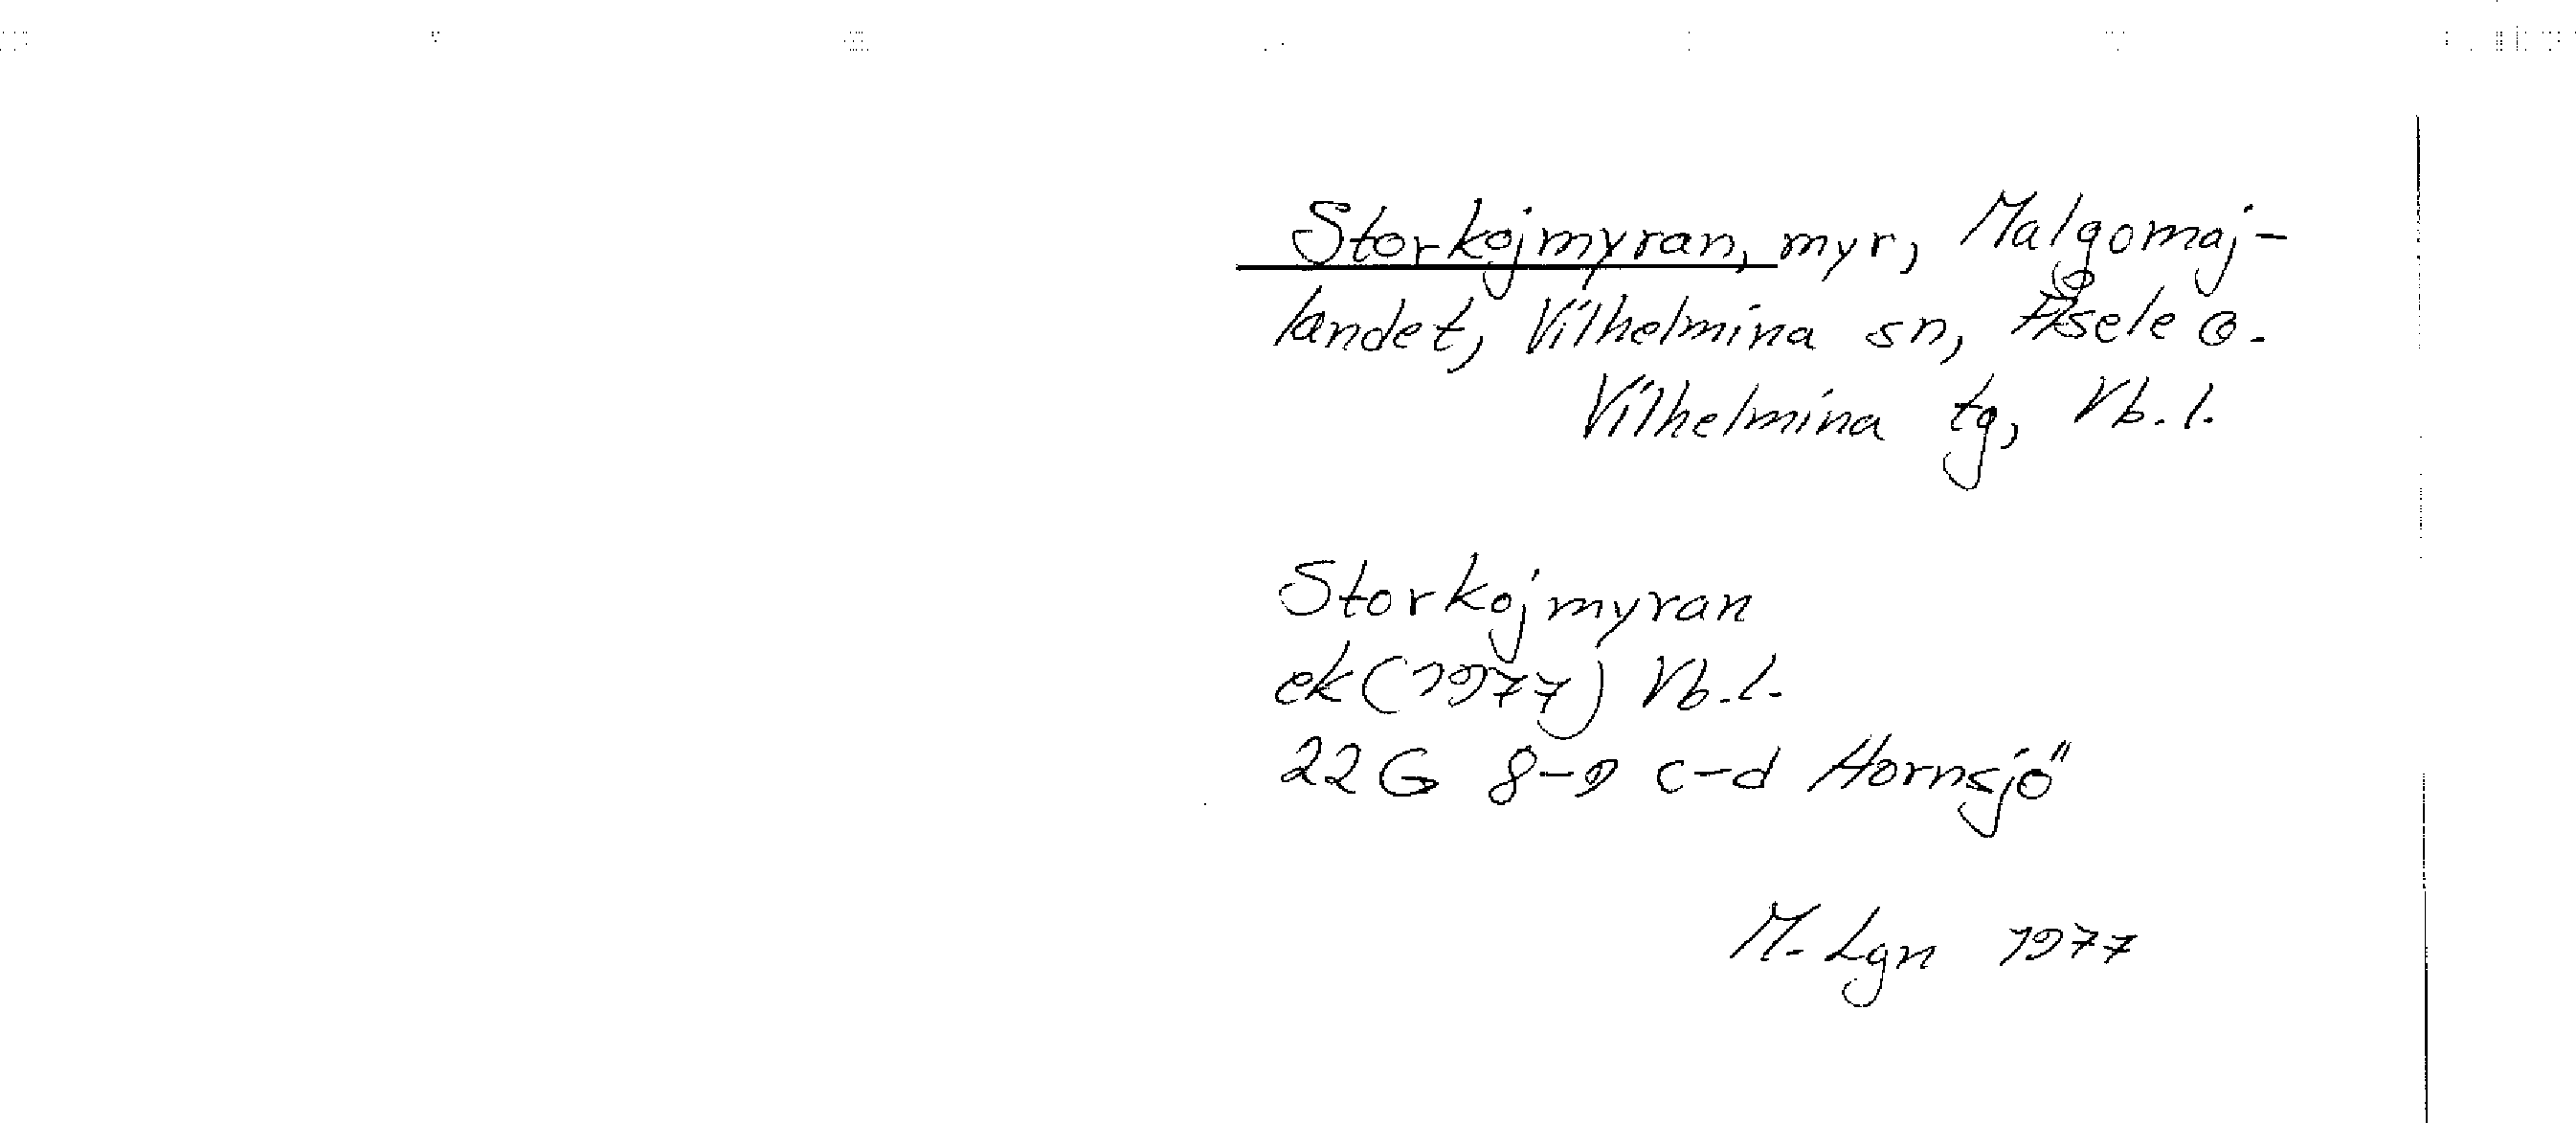 Storkojmyran, myr, Malgomaj-
landet, Vilhelmina sn, Åsele o.
Vilhelmina tg, Vb. l.
Storkojmyran
ek (1977) Vb. l.
22 G 8-9 c-d Hornsjö
M. Lgn 1977